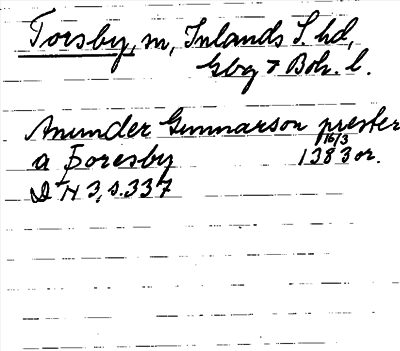 Torsby, m, Inlands S. hd,
Gbg o Boh. l.
Anunder Gunnarson prester
16/3
a Þoresby 1383 or.
DN 3, s. 337